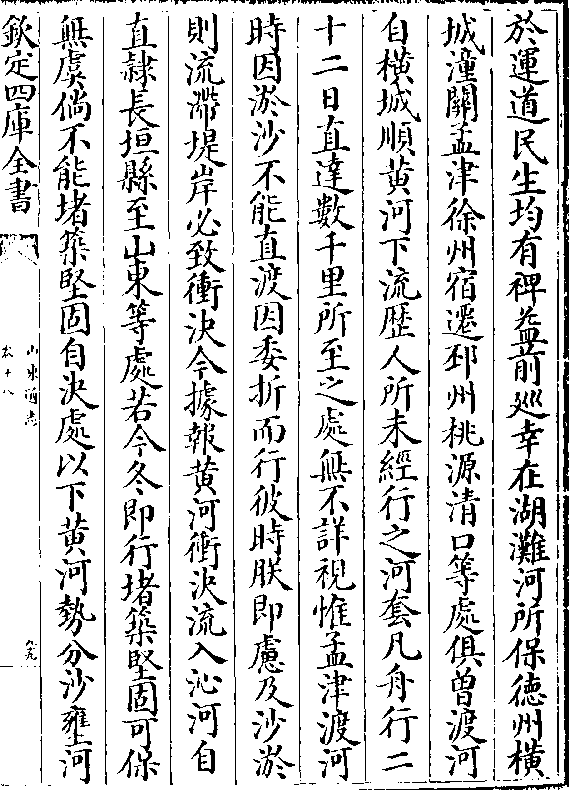 於運道民生均有裨益前廵幸在湖灘河所保徳州横
城潼關孟津徐州宿遷邳州桃源清口等處俱曽渡河
自横城順黄河下流歴人所未經行之河套凡舟行二
十二日直達數千里所至之處無不詳視惟孟津渡河
時因淤沙不能直渡因委折而行彼時朕即慮及沙淤
則流滯堤岸必致衝决今據報黄河衝决流入沁河自
直隷長垣縣至山東等處若今冬即行堵築堅固可保
無虞倘不能堵築堅固自决處以下黄河勢分沙壅河
欽定四庫全書
山東通志
卷十八